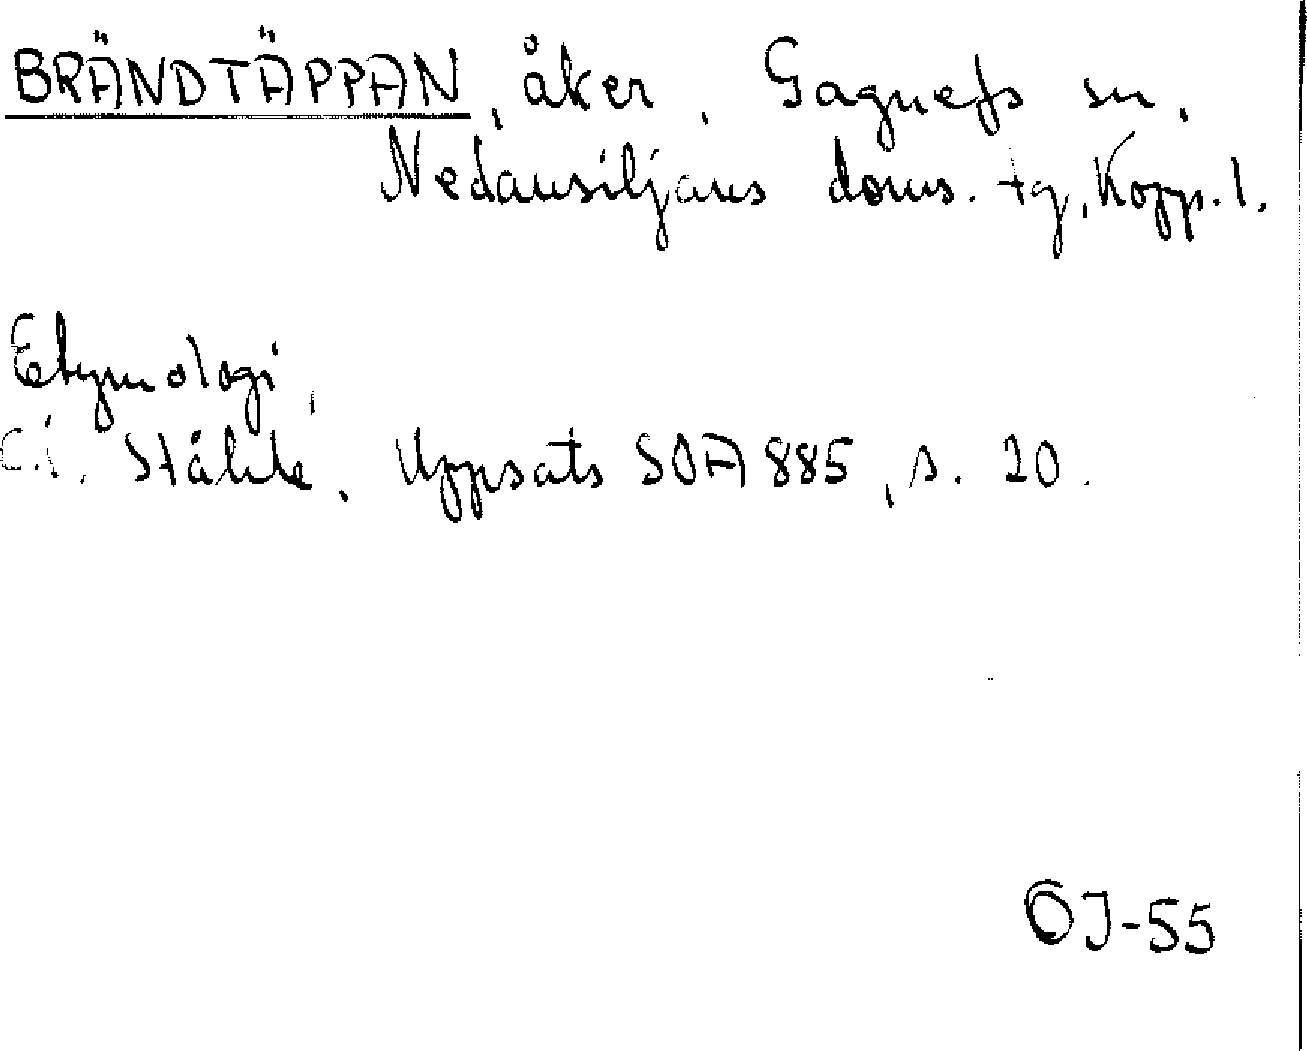 BRÄNDTÄPPAN, åker, Gagnefs sn,
Nedansiljans doms. tg, Kopp. l.
Etymologi,
C.I. Ståhle, Uppsats SOFA 885, s. 20.
OJ-55